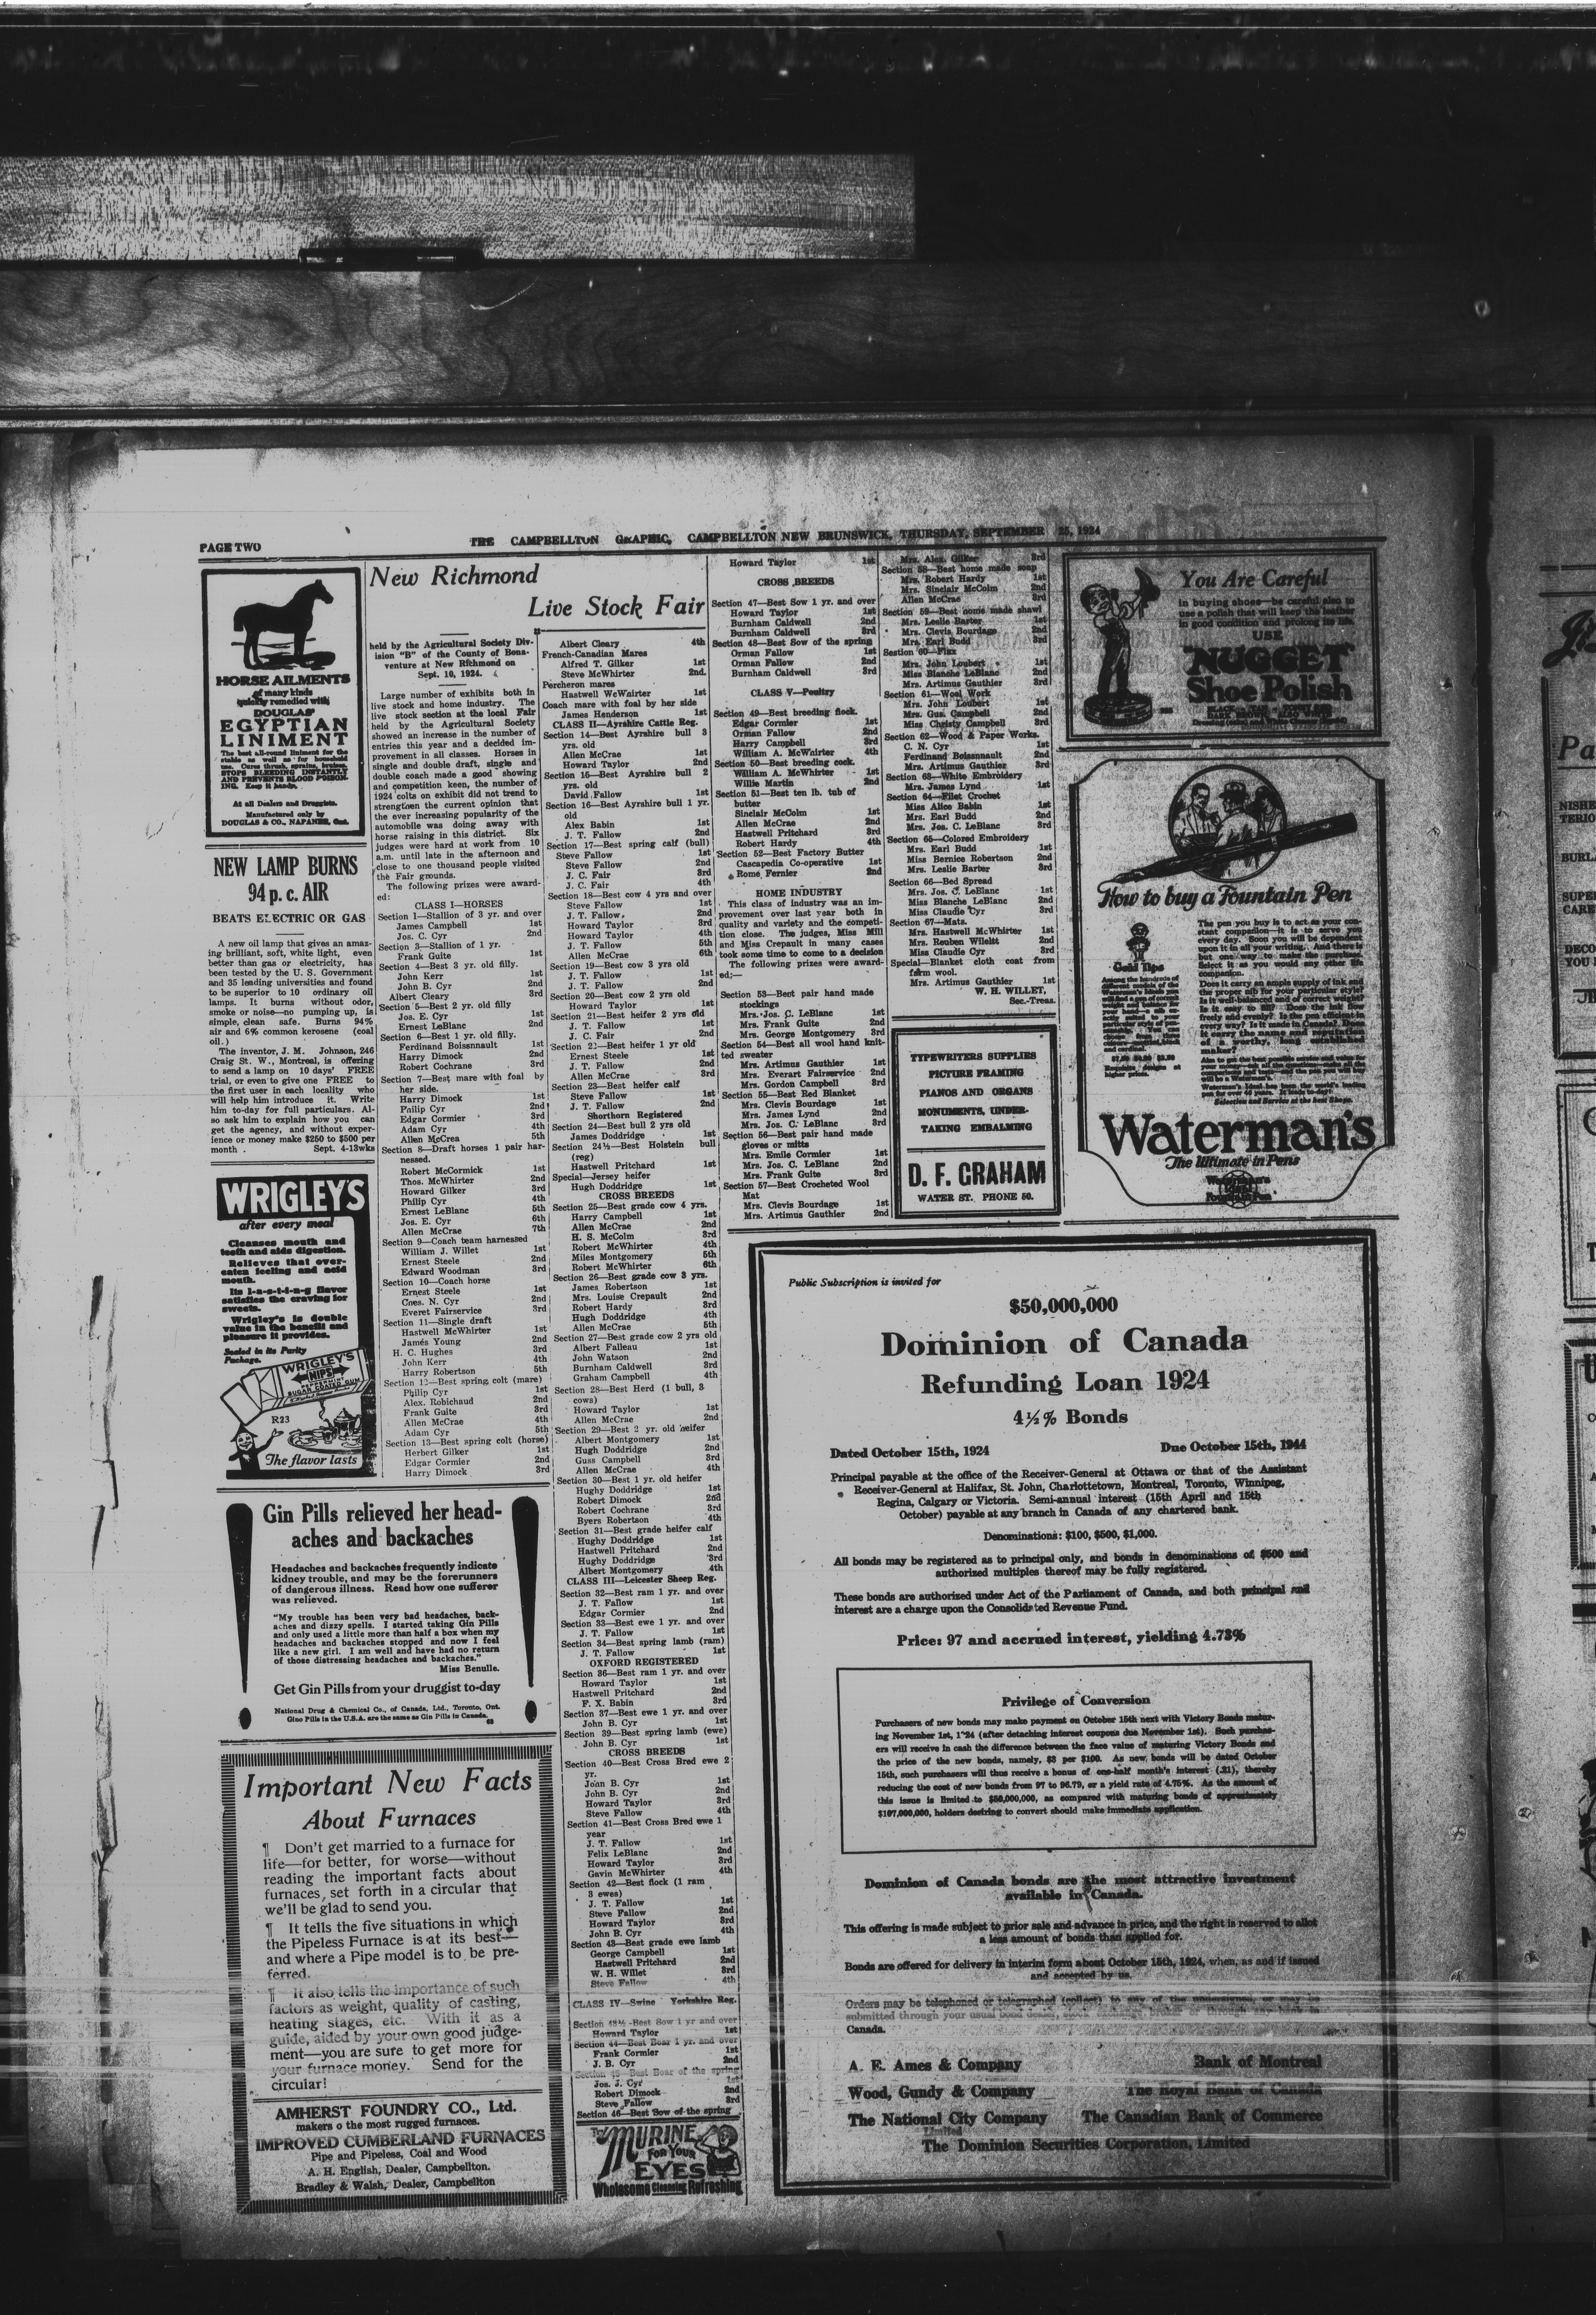 PAGE TWO
THE CAMPBELLTON GRAPHIC, CAMPBELLTON NEW BRUNSWICK, THURSDAY, SEPTEMBER 25, 1924
HORSE AILMENTS
of many kinds
quickly remedied with
DOUGLAS'
EGYPTIAN
LINIMENT
The best all-round liniment for the
stable as well as for household
use. Cures thrush, sprains, bruises.
STOPS BLEEDING INSTANTLY
AND PREVENTS BLOOD POISON-
ING. Keep it handy.
At all Dealers and Druggists.
Manufactured only by
DOUGLAS & CO., NAPANEE, Ont.
NEW LAMP BURNS
94 p. c. AIR
BEATS ELECTRIC OR GAS
A new oil lamp that gives an amaz-
ing brilliant, soft, white light, even
better than gas or electricity, has
been tested by the U. S. Government
and 35 leading universities and found
to be superior to 10 ordinary oil
lamps. It burns without odor,
smoke or noise—no pumping up, is
simple, clean safe. Burns 94%
air and 6% common kerosene (coal
oil.)
The inventor, J. M. Johnson, 246
Craig St. W., Montreal, is offering
to send a lamp on 10 days' FREE
trial, or even to give one FREE to
the first user in each locality who
will help him introduce it. Write
him to-day for full particulars. Al-
so ask him to explain how you can
get the agency, and without exper-
ience or money make $250 to $500 per
month . Sept. 4-13wks
WRIGLEYS
after every meal
Cleanses mouth and
teeth and aids digestion.
Relieves that over-
eaten feeling and acid
mouth.
Its l-a-s-t-i-n-g flavor
satisfies the craving for
sweets.
Wrigley's is double
value in the benefit and
pleasure it provides.
Sealed in its Purity
Package.
WRIGLEY'S
NIPS
SUGAR COATED GUM
R23
The flavor lasts
Gin Pills relieved her head-
aches and backaches
Headaches and backaches frequently indicate
kidney trouble, and may be the forerunners
of dangerous illness. Read how one sufferer
was relieved.
"My trouble has been very bad headaches, back-
aches and dizzy spells. I started taking Gin Pills
and only used a little more than half a box when my
headaches and backaches stopped and now I feel
like a new girl. I am well and have had no return
of those distressing headaches and backaches."
Miss Benulle.
Get Gin Pills from your druggist to-day
National Drug & Chemical Co., of Canada, Ltd., Toronto, Ont.
Gino Pills in the U.S.A. are the same as Gin Pills in Canada.
63
Important New Facts
About Furnaces
¶ Don't get married to a furnace for
life—for better, for worse—without
reading the important facts about
furnaces, set forth in a circular that
we'll be glad to send you.
¶ It tells the five situations in which
the Pipeless Furnace is at its best—
and where a Pipe model is to be pre-
ferred.
¶ It also tells the importance of such
factors as weight, quality of casting,
heating stages, etc. With it as a
guide, aided by your own good judge-
ment—you are sure to get more for
your furnace money. Send for the
circular!
AMHERST FOUNDRY CO., Ltd.
makers o the most rugged furnaces.
IMPROVED CUMBERLAND FURNACES
Pipe and Pipeless, Coal and Wood
A. H. English, Dealer, Campbellton.
Bradley & Walsh, Dealer, Campbellton
New Richmond
Live Stock Fair
held by the Agricultural Society Div-
ision "B" of the County of Bona-
venture at New Richmond on
Sept. 10, 1924.
Large number of exhibits both in
live stock and home industry. The
live stock section at the local Fair
held by the Agricultural Society
showed an increase in the number of
entries this year and a decided im-
provement in all classes. Horses in
single and double draft, single and
double coach made a good showing
and competition keen, the number of
1924 colts on exhibit did not trend to
strengthen the current opinion that
the ever increasing popularity of the
automobile was doing away with
horse raising in this district. Six
judges were hard at work from 10
a.m. until late in the afternoon and
close to one thousand people visited
the Fair grounds.
The following prizes were award-
ed:
CLASS I—HORSES
Section 1—Stallion of 3 yr. and over
James Campbell 1st
Jos. C. Cyr 2nd
Section 3—Stallion of 1 yr.
Frank Guite 1st
Section 4—Best 3 yr. old filly.
John Kerr 1st
John B. Cyr 2nd
Albert Cleary 3rd
Section 5—Best 2 yr. old filly
Jos. E. Cyr 1st
Ernest LeBlanc 2nd
Section 6—Best 1 yr. old filly.
Ferdinand Boissnnault 1st
Harry Dimock 2nd
Robert Cochrane 3rd
Section 7—Best mare with foal by
her side.
Harry Dimock 1st
Philip Cyr 2nd
Edgar Cormier 3rd
Adam Cyr 4th
Allen McCrea 5th
Section 8—Draft horses 1 pair har-
nessed.
Robert McCormick 1st
Thos. McWhirter 2nd
Howard Gilker 3rd
Philip Cyr 4th
Ernest LeBlanc 5th
Jos. E. Cyr 6th
Allen McCrae 7th
Section 9—Coach team harnessed
William J. Willet 1st
Ernest Steele 2nd
Edward Woodman 3rd
Section 10—Coach horse
Ernest Steele 1st
Cnes. N. Cyr 2nd
Everet Fairservice 3rd
Section 11—Single draft
Hastwell McWhirter 1st
James Young 2nd
H. C. Hughes 3rd
John Kerr 4th
Harry Robertson 5th
Section 12—Best spring colt (mare)
Philip Cyr 1st
Alex. Robichaud 2nd
Frank Guite 3rd
Allen McCrae 4th
Adam Cyr 5th
Section 13—Best spring colt (horse)
Herbert Gilker 1st
Edgar Cormier 2nd
Harry Dimock 3rd
Albert Cleary 4th
French-Canadian Mares
Alfred T. Gilker 1st
Steve McWhirter 2nd.
Percheron mares
Hastwell WcWairter 1st
Coach mare with foal by her side
James Henderson 1st
CLASS II—Ayrshire Cattle Reg.
Section 14—Best Ayrshire bull 3
yrs. old
Allen McCrae 1st
Howard Taylor 2nd
Section 15—Best Ayrshire bull 2
yrs. old
David Fallow 1st
Section 16—Best Ayrshire bull 1 yr.
old
Alex Babin 1st
J. T. Fallow 2nd
Section 17—Best spring calf (bull)
Steve Fallow 1st
Steve Fallow 2nd
J. C. Fair 3rd
J. C. Fair 4th
Section 18—Best cow 4 yrs and over
Steve Fallow 1st
J. T. Fallow, 2nd
Howard Taylor 3rd
Howard Taylor 4th
J. T. Fallow 5th
Allen McCrae 6th
Section 19—Best cow 3 yrs old
J. T. Fallow 1st
J. T. Fallow 2nd
Section 20—Best cow 2 yrs old
Howard Taylor 1st
Section 21—Best heifer 2 yrs old
J. T. Fallow 1st
J. C. Fair 2nd
Section 22—Best heifer 1 yr old
Ernest Steele 1st
J. T. Fallow 2nd
Allen McCrae 3rd
Section 23—Best heifer calf
Steve Fallow 1st
J. T. Fallow 2nd
Shorthorn Registered
Section 24—Best bull 2 yrs old
James Doddridge 1st
Section 24½—Best Holstein bull
(reg)
Hastwell Pritchard 1st
Special—Jersey heifer
Hugh Doddridge 1st
CROSS BREEDS
Section 25—Best grade cow 4 yrs.
Harry Campbell 1st
Allen McCrae 2nd
H. S. McColm 3rd
Robert McWhirter 4th
Miles Montgomery 5th
Robert McWhirter 6th
Section 26—Best grade cow 3 yrs.
James Robertson 1st
Mrs. Louise Crepault 2nd
Robert Hardy 3rd
Hugh Doddridge 4th
Allen McCrae 5th
Section 27—Best grade cow 2 yrs old
Albert Falleau 1st
John Watson 2nd
Burnham Caldwell 3rd
Graham Campbell 4th
Section 28—Best Herd (1 bull, 3
cows)
Howard Taylor 1st
Allen McCrae 2nd
Section 29—Best 2 yr. old heifer
Albert Montgomery 1st
Hugh Doddridge 2nd
Guss Campbell 3rd
Allen McCrae 4th
Section 30—Best 1 yr. old heifer
Hughy Doddridge 1st
Robert Dimock 2nd
Robert Cochrane 3rd
Byers Robertson 4th
Section 31—Best grade heifer calf
Hughy Doddridge 1st
Hastwell Pritchard 2nd
Hughy Doddridge 3rd
Albert Montgomery 4th
CLASS III—Leicester Sheep Reg.
Section 32—Best ram 1 yr. and over
J. T. Fallow 1st
Edgar Cormier 2nd
Section 33—Best ewe 1 yr. and over
J. T. Fallow 1st
Section 34—Best spring lamb (ram)
J. T. Fallow 1st
OXFORD REGISTERED
Section 36—Best ram 1 yr. and over
Howard Taylor 1st
Hastwell Pritchard 2nd
F. X. Babin 3rd
Section 37—Best ewe 1 yr. and over
John B. Cyr 1st
Section 39—Best spring lamb (ewe)
John B. Cyr 1st
CROSS BREEDS
Section 40—Best Cross Bred ewe 2
yr.
Joan B. Cyr 1st
John B. Cyr 2nd
Howard Taylor 3rd
Steve Fallow 4th
Section 41—Best Cross Bred ewe 1
year
J. T. Fallow 1st
Felix LeBlanc 2nd
Howard Taylor 3rd
Gavin McWhirter 4th
Section 42—Best flock (1 ram
3 ewes)
J. T. Fallow 1st
Steve Fallow 2nd
Howard Taylor 3rd
John B. Cyr 4th
Section 43—Best grade ewe lamb
George Campbell 1st
Hastwell Pritchard 2nd
W. H. Willet 3rd
Steve Fallow 4th
CLASS IV—Swine Yorkshire Reg.
Section 43½-Best Sow 1 yr and over
Howard Taylor 1st
Section 44—Best Boar 1 yr. and over
Frank Cormier 1st
J. B. Cyr 2nd
Section 45—Best Boar of the spring
Jos. J. Cyr 1st
Robert Dimock 2nd
Steve Fallow 3rd
Section 46—Best Sow of the spring
MURINE
FOR YOUR
EYES
Wholesome Cleansing Refreshing
Howard Taylor 1st
CROSS BREEDS
Section 47—Best Sow 1 yr. and over
Howard Taylor 1st
Burnham Caldwell 2nd
Burnham Caldwell 3rd
Section 48—Best Sow of the spring
Orman Fallow 1st
Orman Fallow 2nd
Burnham Caldwell 3rd
CLASS V—Poultry
Section 49—Best breeding flock.
Edgar Cormier 1st
Orman Fallow 2nd
Harry Campbell 3rd
William A. McWnirter 4th
Section 50—Best breeding cock.
William A. McWhirter 1st
Willie Martin 2nd
Section 51—Best ten lb. tub of
butter
Sinclair McColm 1st
Allen McCrae 2nd
Hastwell Pritchard 3rd
Robert Hardy 4th
Section 52—Best Factory Butter
Cascapedia Co-operative 1st
Rome Fernier 2nd
HOME INDUSTRY
This class of industry was an im-
provement over last year both in
quality and variety and the competi-
tion close. The judges, Miss Mill
and Miss Crepault in many cases
took some time to come to a decision
The following prizes were award-
ed;—
Section 53—Best pair hand made
stockings
Mrs. Jos. C. LeBlanc 1st
Mrs. Frank Guite 2nd
Mrs. George Montgomery 3rd
Section 54—Best all wool hand knit-
ted sweater
Mrs. Artimus Gauthier 1st
Mrs. Everart Fairservice 2nd
Mrs. Gordon Campbell 3rd
Section 55—Best Red Blanket
Mrs. Clevis Bourdage 1st
Mrs. James Lynd 2nd
Mrs. Jos. C. LeBlanc 3rd
Section 56—Best pair hand made
gloves or mitts
Mrs. Emile Cormier 1st
Mrs. Jos. C. LeBlanc 2nd
Mrs. Frank Guite 3rd
Section 57—Best Crocheted Wool
Mat
Mrs. Clevis Bourdage 1st
Mrs. Artimus Gauthier 2nd
Mrs. Alex. Gilker 3rd
Section 58—Best home made soap
Mrs. Robert Hardy 1st
Mrs. Sinclair McColm 2nd
Allen McCrae 3rd
Section 59—Best nome made shawl
Mrs. Leslie Barter 1st
Mrs. Clevis Bourdage 2nd
Mrs. Earl Budd 3rd
Section 60—Flax
Mrs. John Loubert 1st
Miss Blanche LeBlanc 2nd
Mrs. Artimus Gauthier 3rd
Section 61—Wool Work
Mrs. John Loubert 1st
Mrs. Gus. Campbell 2nd
Miss Christy Campbell 3rd
Section 62—Wood & Paper Works.
C. N. Cyr 1st
Ferdinand Boissnnault 2nd
Mrs. Artimus Gauthier 3rd
Section 63—White Embroidery
Mrs. James Lynd 1st
Section 64—Filet Crochet
Miss Alice Babin 1st
Mrs. Earl Budd 2nd
Mrs. Jos. C. LeBlanc 3rd
Section 65—Colored Embroidery
Mrs. Earl Budd 1st
Miss Bernice Robertson 2nd
Mrs. Leslie Barter 3rd
Section 66—Bed Spread
Mrs. Jos. C. LeBlanc 1st
Miss Blanche LeBlanc 2nd
Miss Claudie Cyr 3rd
Section 67—Mats.
Mrs. Hastwell McWhirter 1st
Mrs. Reuben Wileitt 2nd
Miss Claudie Cyr 3rd
Special—Blanket cloth coat from
farm wool.
Mrs. Artimus Gauthier 1st
W. H. WILLET,
Sec.-Treas.
TYPEWRITERS SUPPLIES
PICTURE FRAMING
PIANOS AND ORGANS
MONUMENTS, UNDER-
TAKING EMBALMING
D. F. GRAHAM
WATER ST. PHONE 50.
You Are Careful
in buying shoes—be careful also to
use a polish that will keep the leather
in good condition and prolong its life.
USE
"NUGGET"
Shoe Polish
BLACK - TAN - TONEY RED
DARK BROWN - ALSO WHITE
How to buy a Fountain Pen
The pen you buy is to act as your con-
stant companion—it is to serve you
every day. Soon you will be dependent
upon it in all your writing. And there is
but one way to make the purchase.
Select it as you would any other life
companion.
Does it carry an ample supply of ink and
the proper nib for your particular style?
Is it well-balanced and of correct weight?
Is it easy to fill? Does the ink flow
freely and evenly? Is the pen efficient in
every way? Is it made in Canada? Does
it carry the name and reputation
of a worthy, long established
maker?
Gold Tips
Selection and Service at the best Shops.
Waterman's
The Ultimate in Pens
Public Subscription is invited for
$50,000,000
Dominion of Canada
Refunding Loan 1924
4½% Bonds
Dated October 15th, 1924 Due October 15th, 1944
Principal payable at the office of the Receiver-General at Ottawa or that of the Assistant
Receiver-General at Halifax, St. John, Charlottetown, Montreal, Toronto, Winnipeg,
Regina, Calgary or Victoria. Semi-annual interest (15th April and 15th
October) payable at any branch in Canada of any chartered bank.
Denominations: $100, $500, $1,000.
All bonds may be registered as to principal only, and bonds in denominations of $500 and
authorized multiples thereof may be fully registered.
These bonds are authorized under Act of the Parliament of Canada, and both principal and
interest are a charge upon the Consolidated Revenue Fund.
Price: 97 and accrued interest, yielding 4.73%
Privilege of Conversion
Purchasers of new bonds may make payment on October 15th next with Victory Bonds matur-
ing November 1st, 1924 (after detaching interest coupons due November 1st). Such purchas-
ers will receive in cash the difference between the face value of maturing Victory Bonds and
the price of the new bonds, namely, $3 per $100. As new bonds will be dated October
15th, such purchasers will thus receive a bonus of one-half month's interest (.21), thereby
reducing the cost of new bonds from 97 to 96.79, or a yield rate of 4.75%. As the amount of
this issue is limited to $50,000,000, as compared with maturing bonds of approximately
$107,000,000, holders desiring to convert should make immediate application.
Dominion of Canada bonds are the most attractive investment
available in Canada.
This offering is made subject to prior sale and advance in price, and the right is reserved to allot
a less amount of bonds than applied for.
Bonds are offered for delivery in interim form about October 15th, 1924, when, as and if issued
and accepted by us.
Orders may be telephoned or telegraphed (collect) to any of the undersigned, or may be
submitted through your usual bond dealer,
Canada.
A. E. Ames & Company Bank of Montreal
Wood, Gundy & Company The Royal Bank of Canada
The National City Company The Canadian Bank of Commerce
Limited
The Dominion Securities Corporation, Limited